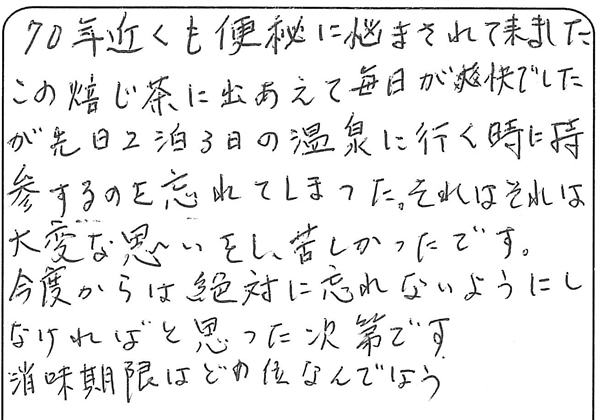 70年近くも便秘に悩まされて来ました
この焙じ茶に出あえて毎日が爽快でした
が先日2泊3日の温泉に行く時に持
参するのを忘れてしまった。それはそれは
大変な思いをし、苦しかったです。
今度からは絶対に忘れないようにし
なければと思った次第です
消味期限はどの位なんでしょう